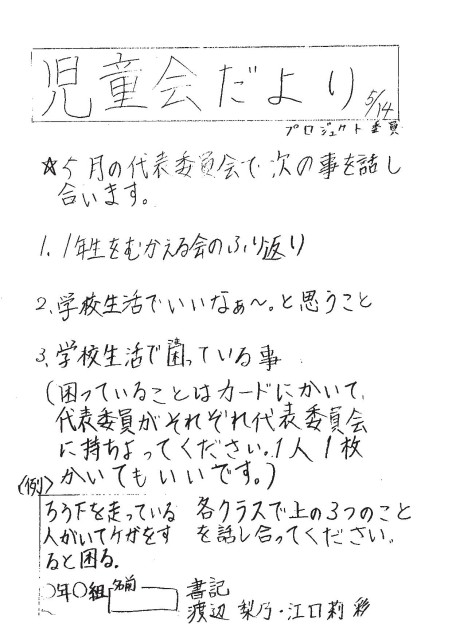 児童会だより 5/14
プロジェクト委員
☆5月の代表委員会で次の事を話し
合います。
1. 1年生をむかえる会のふり返り
2. 学校生活でいいなぁ〜。と思うこと
3. 学校生活で困っている事
(困っていることはカードにかいて、
代表委員がそれぞれ代表委員会
に持ちよってください。1人1枚
かいてもいいです。)
〈例〉
ろう下を走っている
人がいてケガをす
ると困る。
○年○組 名前
各クラスで上の3つのこと
を話し合ってください。
書記
渡辺 梨乃・江口莉彩